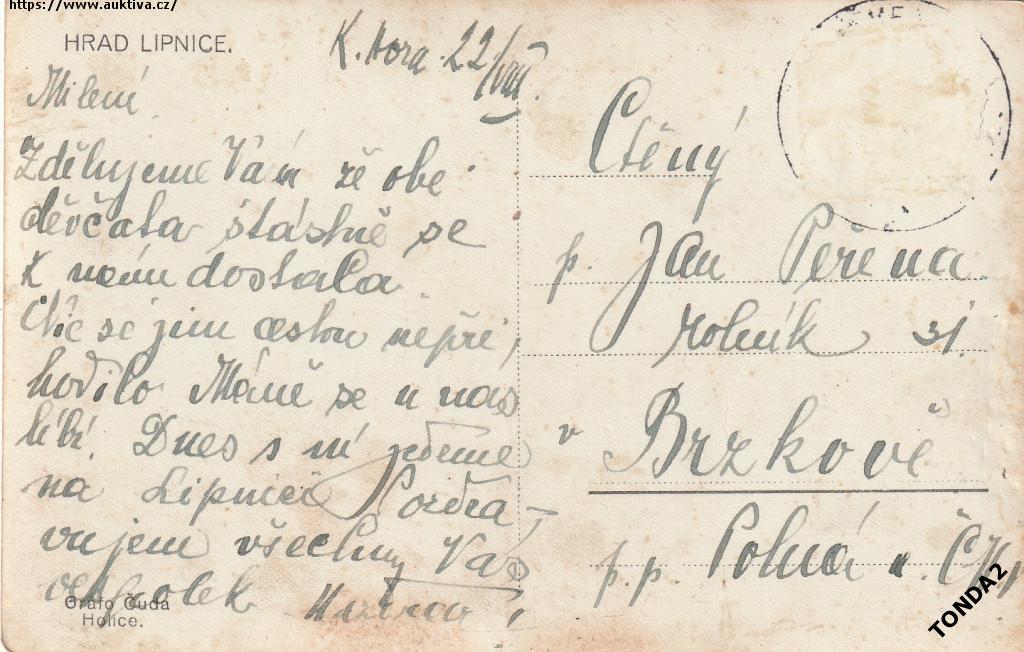 https://www.auktiva.cz/
HRAD LIPNICE.
K. Hora 22/VIII.
Milení
Zdělujeme Vám že obě
děvčata štástně se
k námu dostala.
Nic se jim cestou nepři,
hodilo Máně se u nás
líbí. Dnes s ní jedeme
na Lipnici Pozdra-
vujem všechny Vás
vespolek
Grafo Čuda
Holice.
Ctěný
p. Jan Peřina
rolník 31.
v Brzkově
p.p. Polná
TONDA2